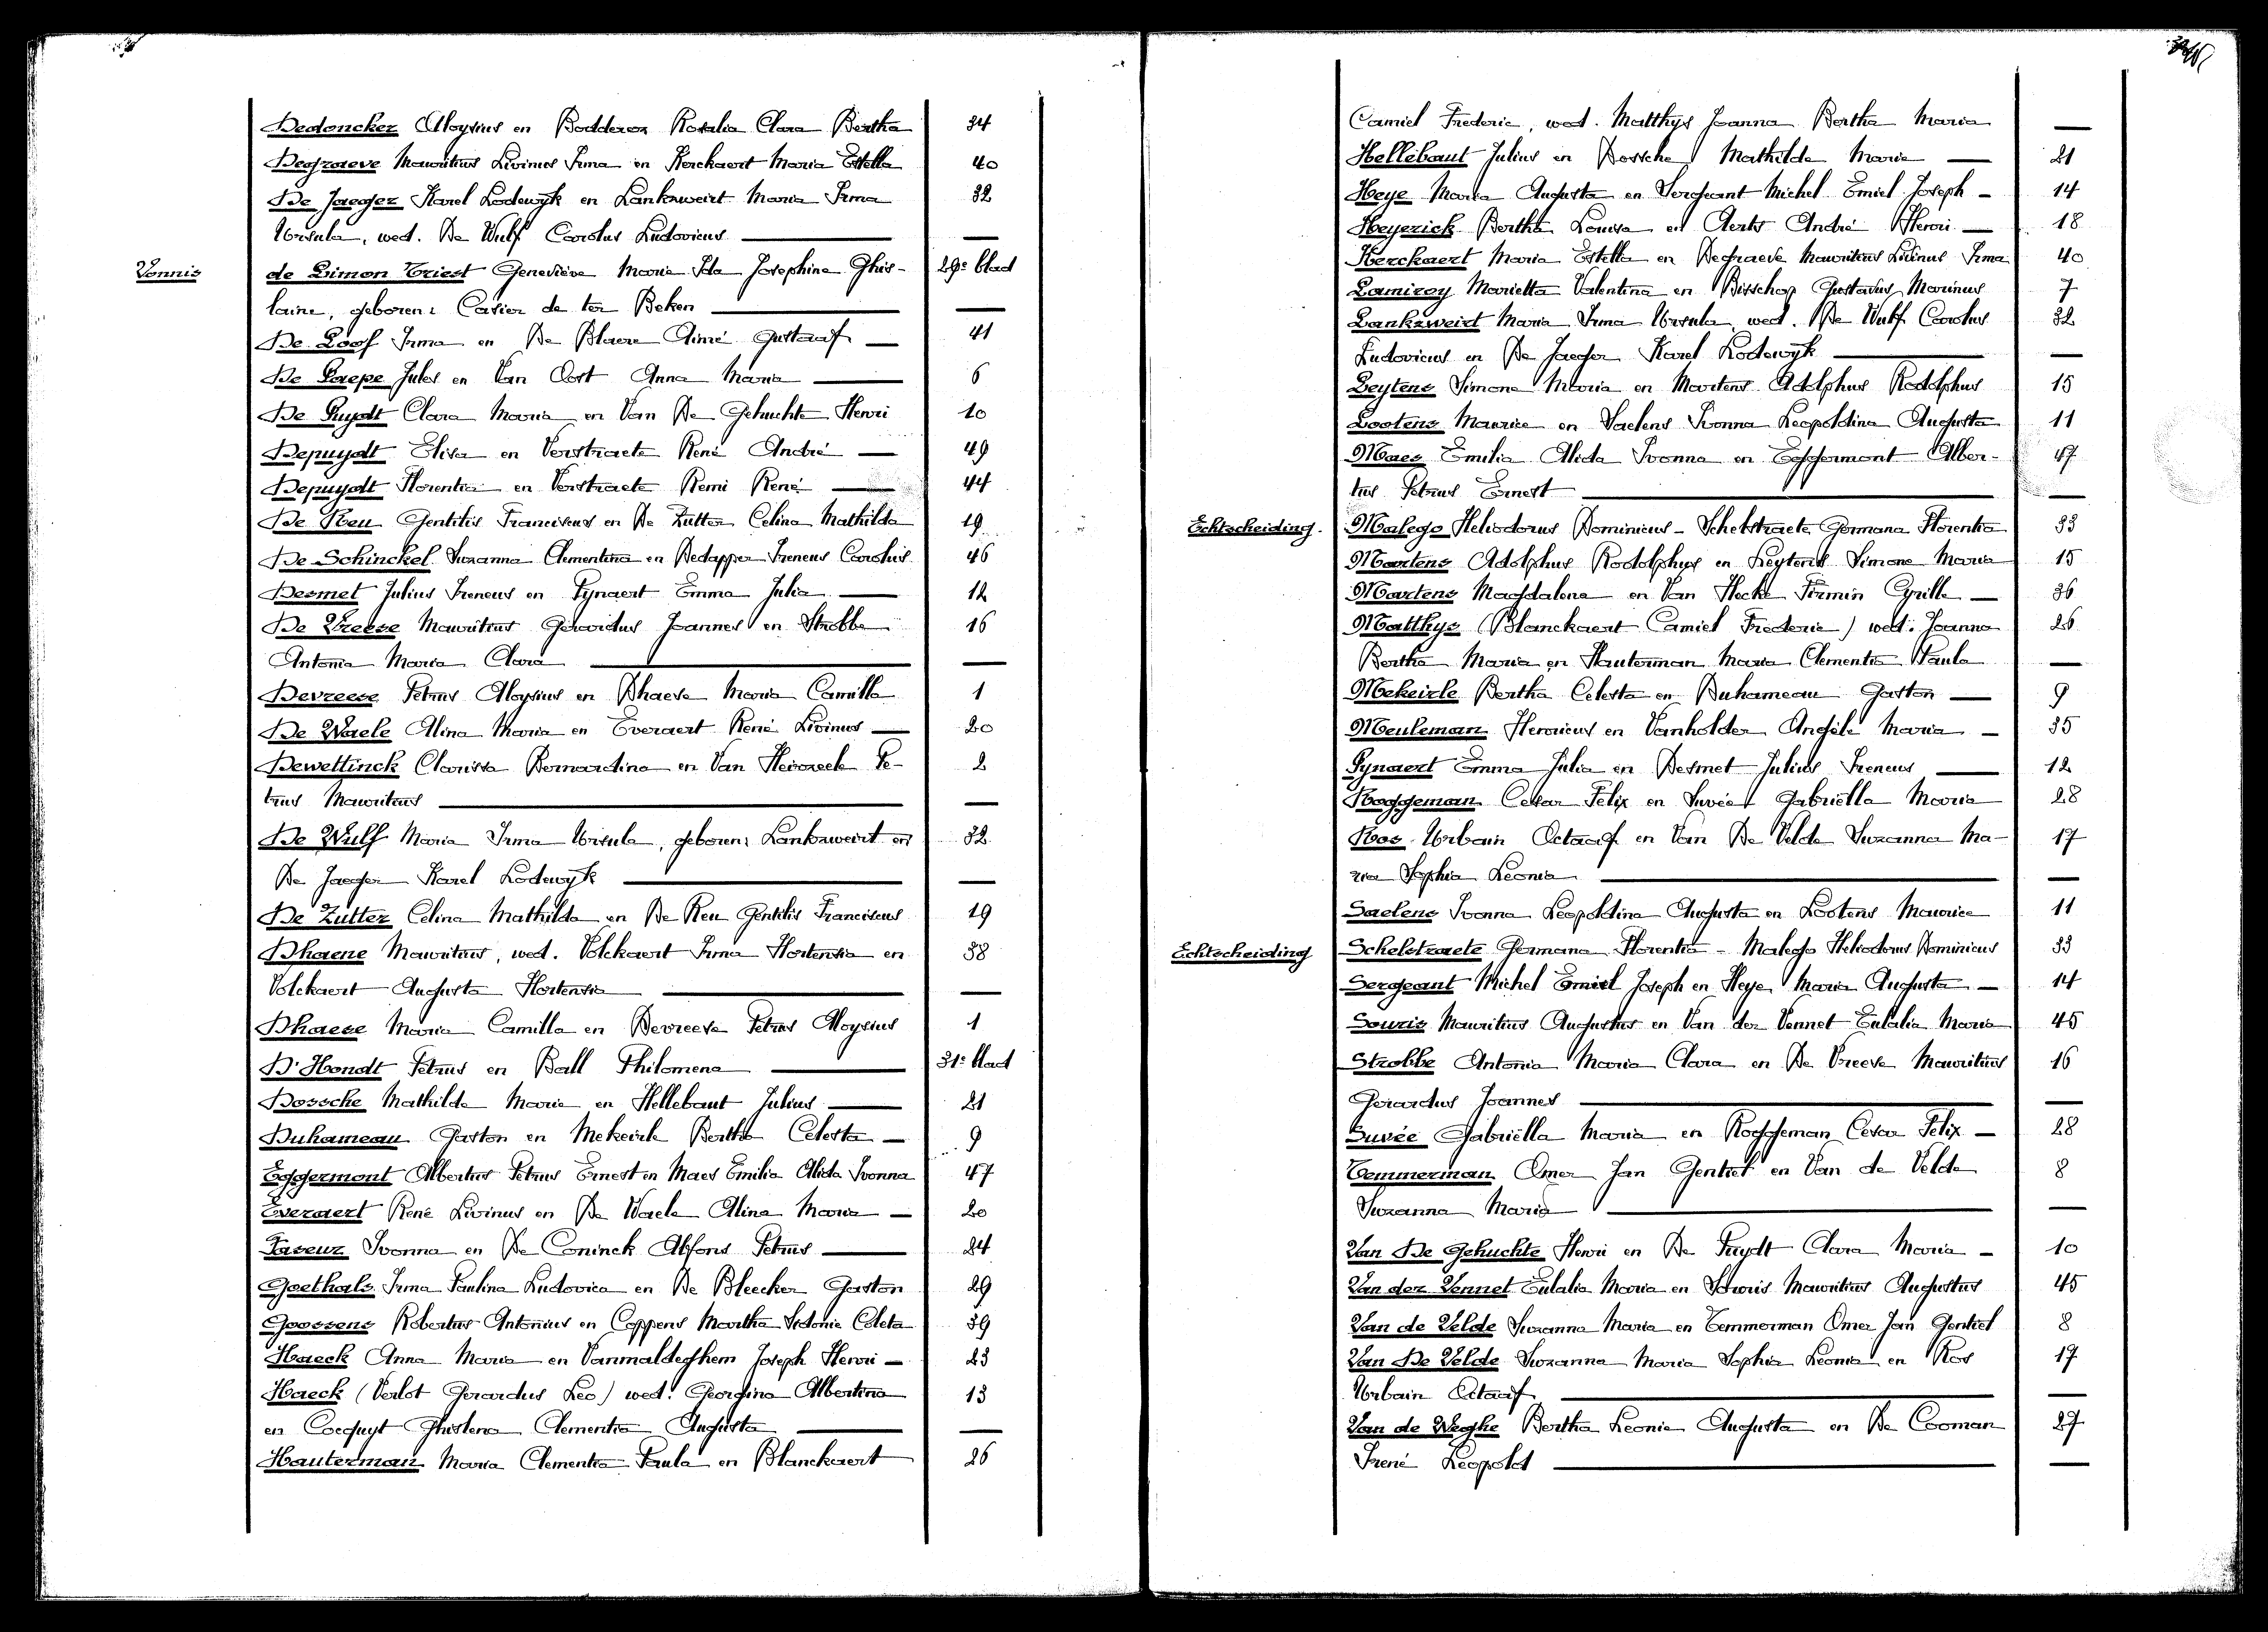 Dedoncker Aloysius en Bodderez Rosalia Clara Bertha 34
Degraeve Mauritius Livinus Irma en Kerckaert Maria Estella 40
De Jaeger Karel Lodewyk en Lankzweirt Maria Irma 32
Ursula, wed. De Wulf Carolus Ludovicus —
Vonnis de Limon Triest Geneviève Maria Ida Josephina Ghis- 29e blad
laine, geboren: Casier de ter Beken —
De Loof Irma en De Blaere Aimé Gustaaf — 41
De Paepe Jules en Van Oost Anna Maria — 6
De Puydt Clara Maria en Van De Gehuchte Henri 10
Depuydt Elisa en Verstraete René André — 49
Depuydt Florentia en Verstraete Remi René — 44
De Reu Gentilis Franciscus en De Zutter Celina Mathilda 19
De Schinckel Suzanna Clementina en Dedapper Ireneus Carolus 46
Desmet Julius Ireneus en Pynaert Emma Julia — 12
De Vreese Mauritius Gerardus Joannes en Strobbe 16
Antonia Maria Clara —
Devreese Petrus Aloysius en Dhaese Maria Camilla 1
De Waele Alina Maria en Everaert René Livinus — 20
Dewettinck Clarissa Bernardina en Van Hevereele Pe- 2
trus Mauritius —
De Wulf Maria Irma Ursula, geboren: Lankzweirt en 32
De Jaeger Karel Lodewyk —
De Zutter Celina Mathilda en De Reu Gentilis Franciscus 19
Dhaene Mauritius, wed. Volckaert Irma Hortensia en 38
Volckaert Augusta Hortensia —
Dhaese Maria Camilla en Devreese Petrus Aloysius 1
D'Hondt Petrus en Ball Philomena — 31e blad
Dossche Mathilda Maria en Hellebaut Julius — 21
Duhameau Gaston en Mekeirle Bertha Celesta — 9
Eggermont Albertus Petrus Ernest en Maes Emilia Alida Ivonna 47
Everaert René Livinus en De Waele Alina Maria — 20
Faseur Ivonna en De Coninck Alfons Petrus — 24
Goethals Irma Paulina Ludovica en De Bleecker Gaston 29
Goossens Robertus Antonius en Coppens Martha Sidonie Coleta 39
Haeck Anna Maria en Vanmaldeghem Joseph Henri — 23
Haeck (Verlot Gerardus Leo) wed. Georgina Albertina 13
en Cocquyt Ghislena Clementia Augusta —
Hauterman Maria Clementia Paula en Blanckaert 26
Camiel Frederic, wed. Matthys Joanna Bertha Maria —
Hellebaut Julius en Dossche Mathilda Maria — 21
Heye Maria Augusta en Sergeant Michel Emiel Joseph — 14
Heyerick Bertha Louisa en Aerts André Henri — 18
Kerckaert Maria Estella en Degraeve Mauritius Livinus Irma 40
Lamiroy Marietta Valentina en Bisschop Gustavus Marinus 7
Lankzweirt Maria Irma Ursula wed. De Wulf Carolus 32
Ludovicus en De Jaeger Karel Lodewyk —
Leytens Simone Maria en Martens Adolphus Rodolphus 15
Lootens Maurice en Saelens Ivonna Leopoldina Augusta 11
Maes Emilia Alida Ivonna en Eggermont Alber- 47
tus Petrus Ernest —
Echtscheiding. Malego Heliodorus Dominicus - Schelstraete Germana Florentia 33
Martens Adolphus Rodolphus en Leytens Simone Maria 15
Martens Magdalena en Van Hecke Firmin Cyrille — 36
Matthys (Blanckaert Camiel Frederic) wed. Joanna 26
Bertha Maria en Hauterman Maria Clementia Paula —
Mekeirle Bertha Celesta en Duhameau Gaston — 9
Meuleman Henricus en Vanholder Angèle Maria — 35
Pynaert Emma Julia en Desmet Julius Ireneus — 12
Roggeman Cesar Felix en Suvée Gabriëlla Maria 28
Ros Urbain Octaaf en Van De Velde Suzanna Ma- 17
ria Sophia Leonia —
Saelens Ivonna Leopoldina Augusta en Lootens Maurice 11
Echtscheiding Schelstraete Germana Florentia - Malego Heliodorus Dominicus 33
Sergeant Michel Emiel Joseph en Heye Maria Augusta — 14
Souris Mauritius Augustus en Van der Vennet Eulalia Maria 45
Strobbe Antonia Maria Clara en De Vreese Mauritius 16
Gerardus Joannes —
Suvée Gabriëlla Maria en Roggeman Cesar Felix — 28
Temmerman Omer Jan Gentiel en Van de Velde 8
Suzanna Maria —
Van De Gehuchte Henri en De Puydt Clara Maria — 10
Van der Vennet Eulalia Maria en Souris Mauritius Augustus 45
Van de Velde Suzanna Maria en Temmerman Omer Jan Gentiel 8
Van De Velde Suzanna Maria Sophia Leonia en Ros 17
Urbain Octaaf —
Van de Weghe Bertha Leonie Augusta en De Cooman 27
Irené Leopold —